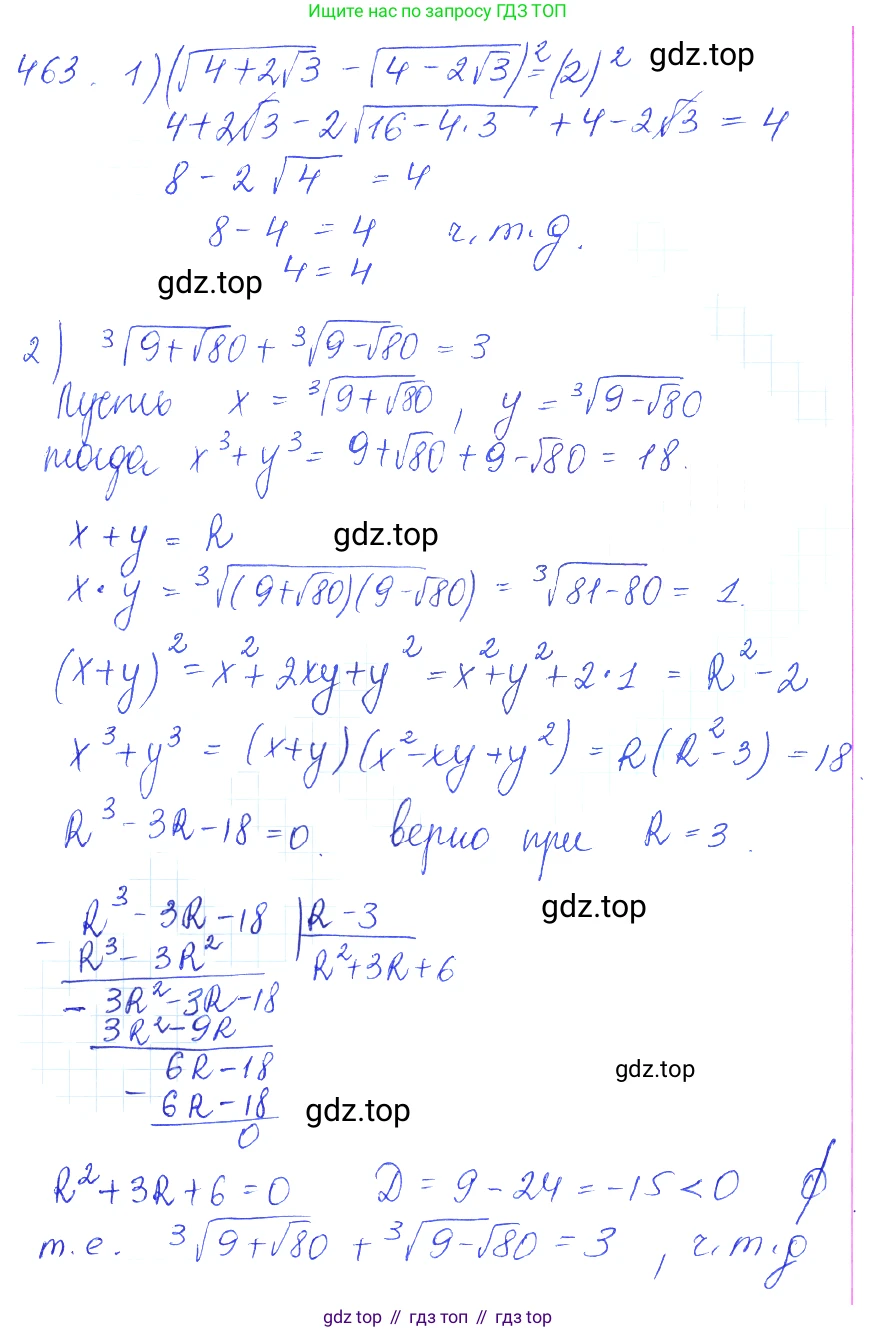 Ищите нас по запросу ГДЗ ТОП
463. 1) (√(4+2√3) - √(4-2√3))² = (2)² gdz.top
4+2√3 - 2√(16-4·3) + 4-2√3 = 4
8 - 2√4 = 4
8-4 = 4 ч.т.д.
gdz.top 4 = 4
2) ³√(9+√80) + ³√(9-√80) = 3
Пусть x = ³√(9+√80), y = ³√(9-√80)
тогда x³+y³ = 9+√80+9-√80 = 18.
x + y = R gdz.top
x·y = ³√((9+√80)(9-√80)) = ³√(81-80) = 1.
(x+y)² = x²+2xy+y² = x²+y²+2·1 = R²-2
x³+y³ = (x+y)(x²-xy+y²) = R(R²-3) = 18
R³-3R-18=0. верно при R=3.
- R³-3R-18 | R-3 gdz.top
R³-3R² R²+3R+6
- 3R²-3R-18
3R²-9R
6R-18 gdz.top
- 6R-18 gdz.top
0
R²+3R+6=0 D = 9-24 = -15<0 ∅
т.е. ³√(9+√80) + ³√(9-√80) = 3, ч.т.д
gdz top // гдз топ // gdz top